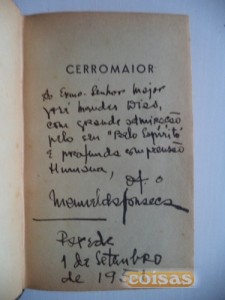 CERROMAIOR
Ao Exmo. Senhor Major
José Mendes Dias,
com grande admiração
pelo seu "Belo Espírito"
e profunda compreensão
Humana,
Manuel da Fonseca
Parede
1 de Setembro
de
coisas